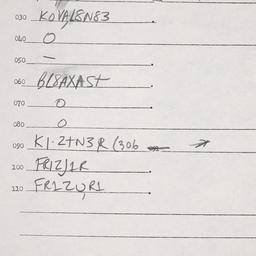 030 KOVAL8N83
040 O
050 —
060 BL8AXAST
070 O
080 O
090 K1·2+N3R (306 →
100 FR1ZJ1R
110 FR1ZUR1